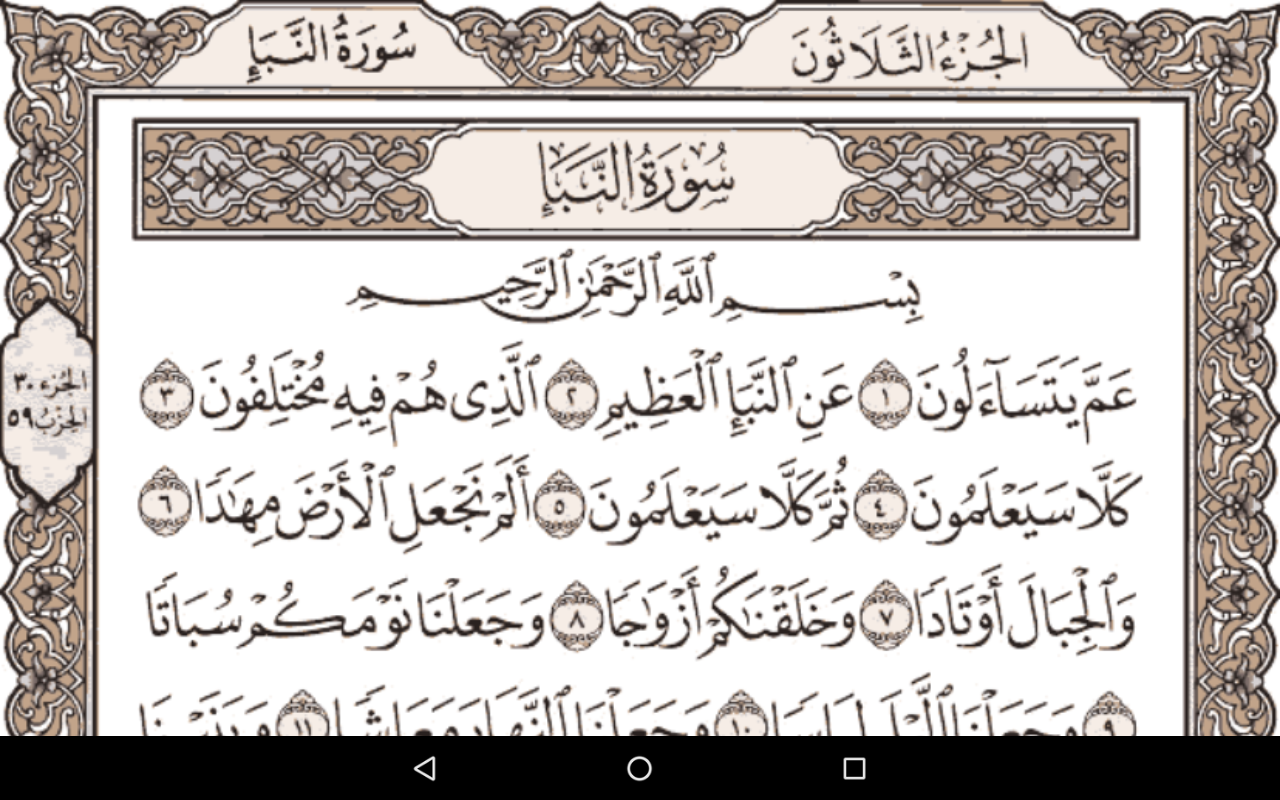 الجُزْءُ الثَّلَاثُونَ
سُورَةُ النَّبَإِ
سُورَةُ النَّبَإِ
بِسْمِ ٱللَّهِ ٱلرَّحْمَٰنِ ٱلرَّحِيمِ
عَمَّ يَتَسَآءَلُونَ ١ عَنِ ٱلنَّبَإِ ٱلْعَظِيمِ ٢ ٱلَّذِى هُمْ فِيهِ مُخْتَلِفُونَ ٣
كَلَّا سَيَعْلَمُونَ ٤ ثُمَّ كَلَّا سَيَعْلَمُونَ ٥ أَلَمْ نَجْعَلِ ٱلْأَرْضَ مِهَٰدًا ٦
وَٱلْجِبَالَ أَوْتَادًا ٧ وَخَلَقْنَٰكُمْ أَزْوَٰجًا ٨ وَجَعَلْنَا نَوْمَكُمْ سُبَاتًا
٩ وَجَعَلْنَا ٱلَّيْلَ لِبَاسًا ١٠ وَجَعَلْنَا ٱلنَّهَارَ مَعَاشًا ١١ وَبَنَيْنَا
الجُزء ٣٠
الحِزْبُ ٥٩